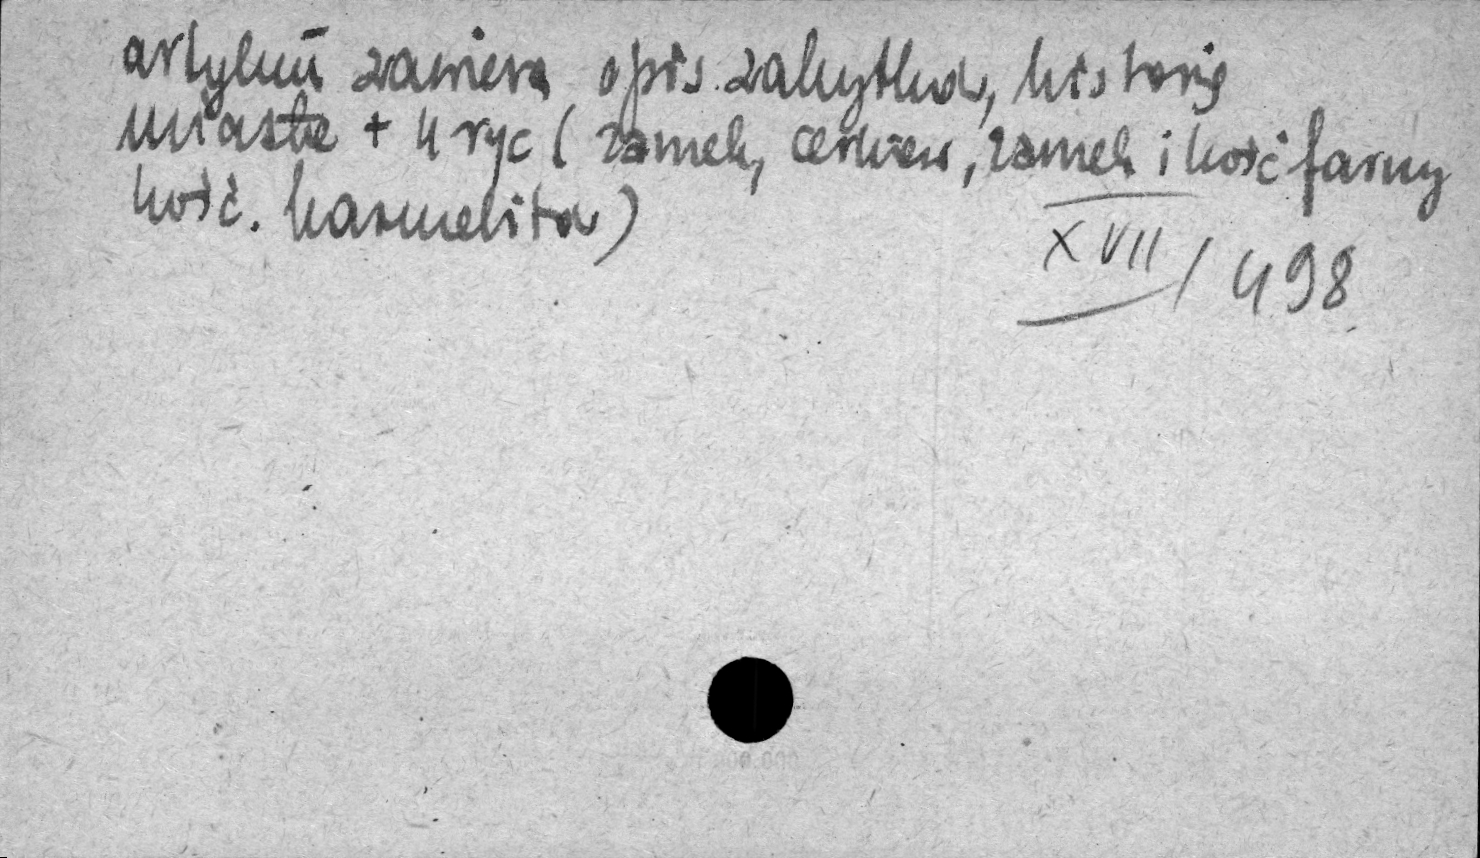 artykuł zawiera opis zabytków, historię
miasta + 4 ryc ( zamek, cerkiew, zamek i kość farny
kość. karmelitów)
XVII / 498